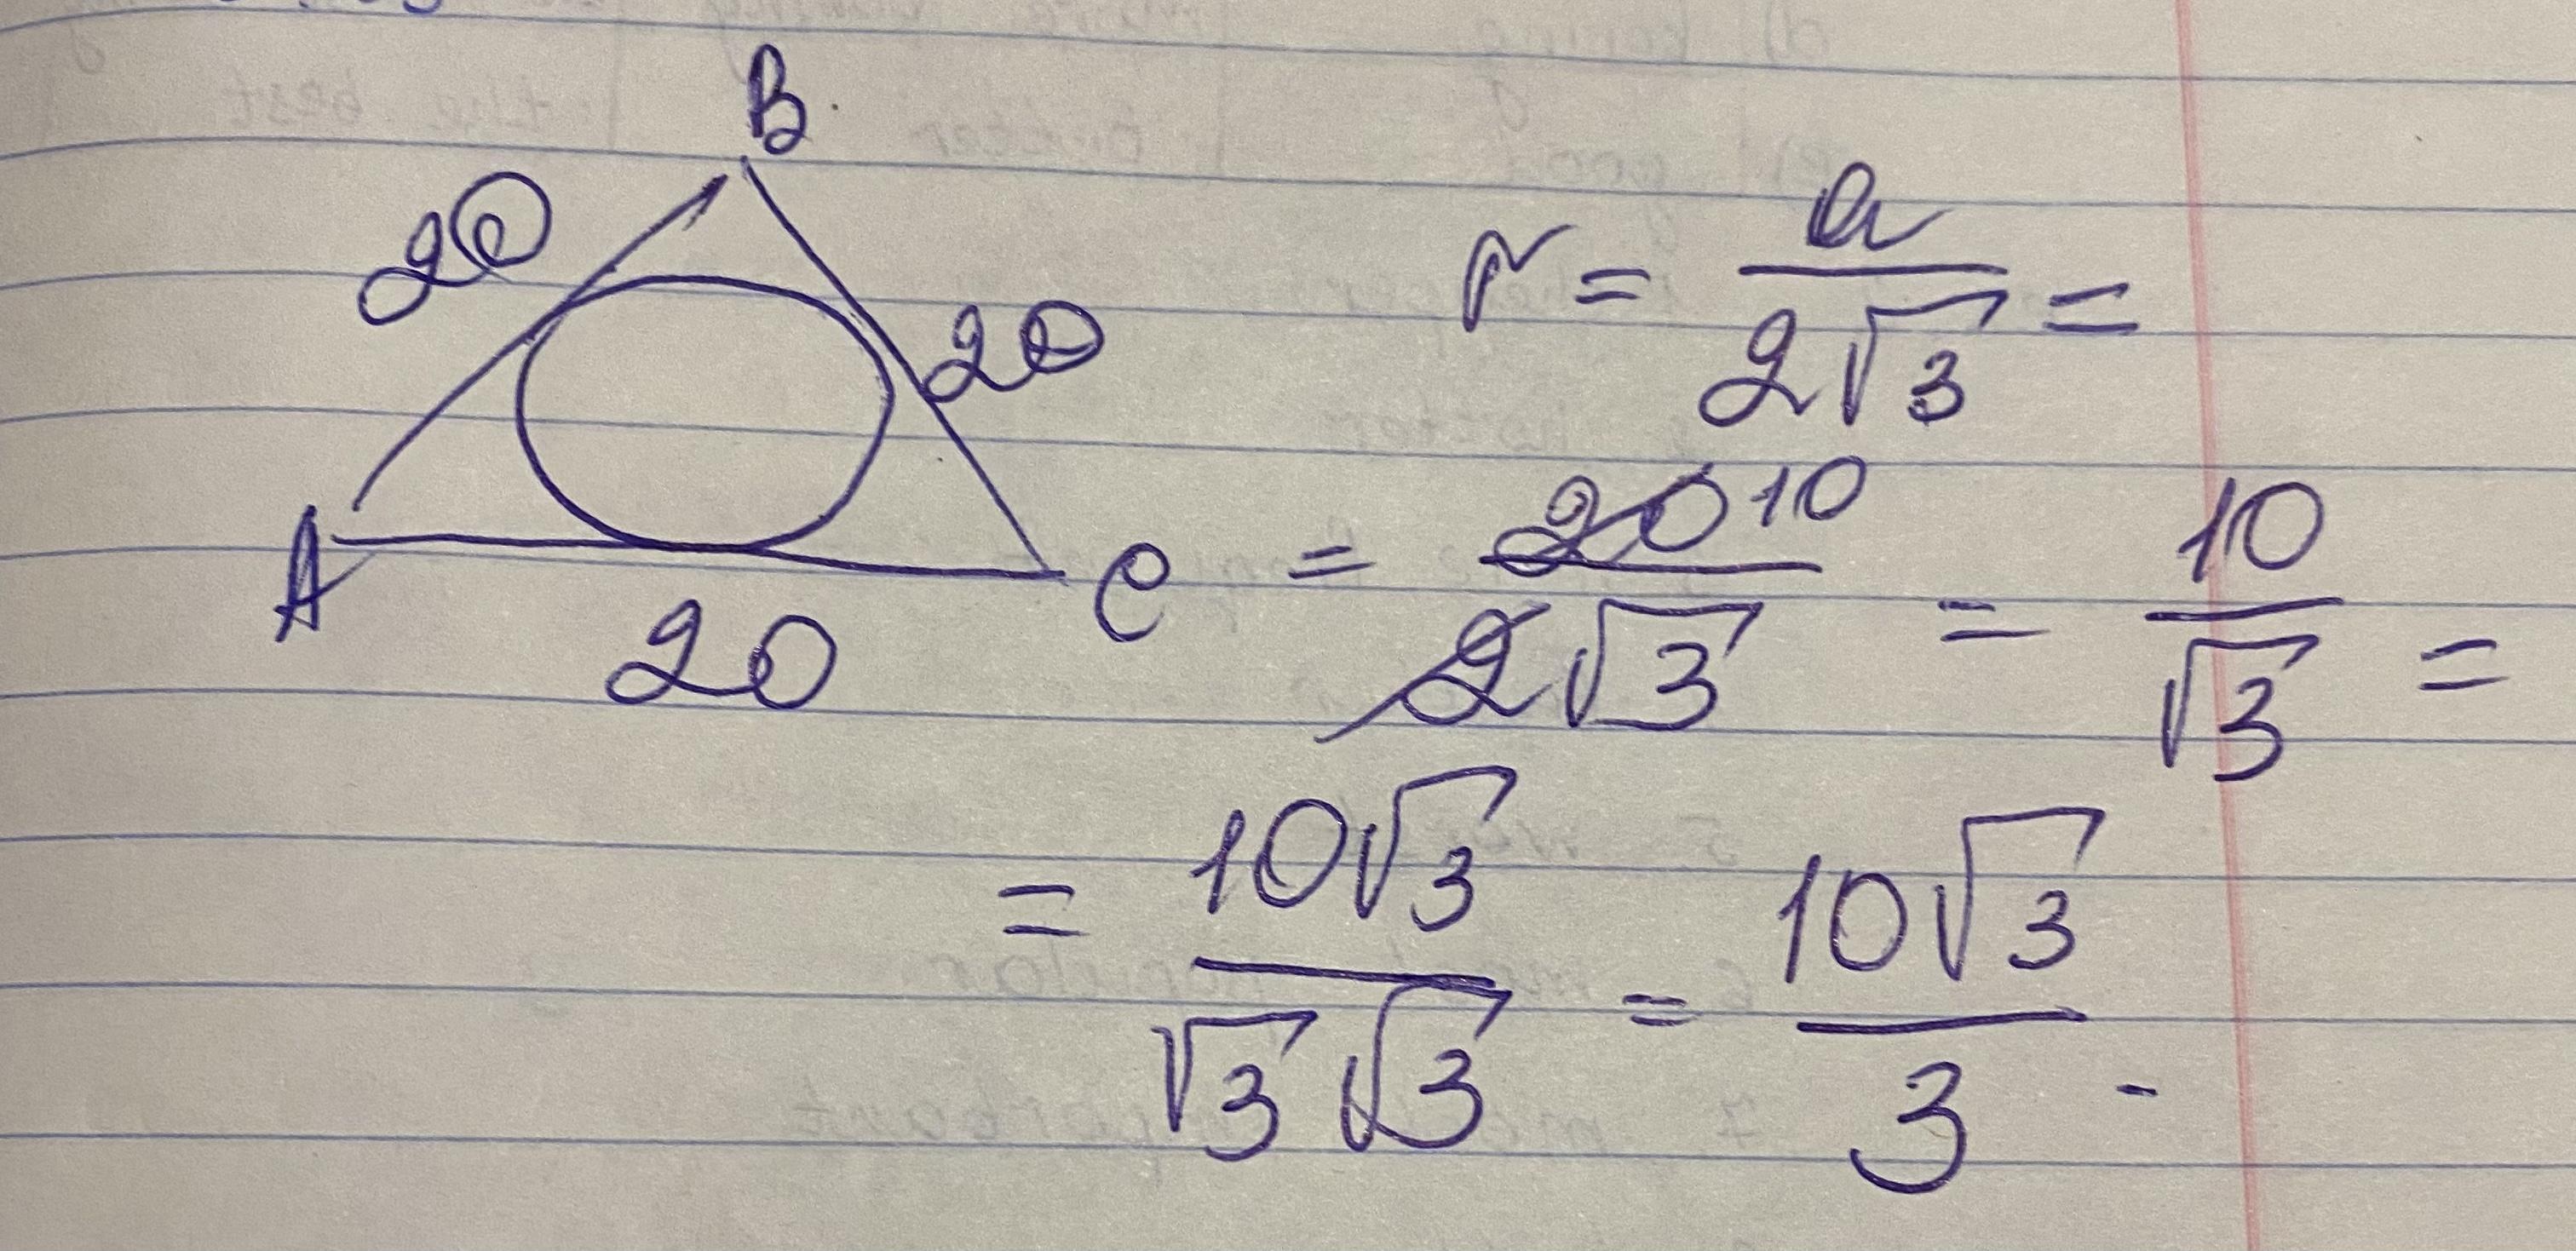 B.
20
20
A
C
20
r = a / 2√3 =
= 20 10 / 2√3 = 10 / √3 =
= 10√3 / √3 √3 = 10√3 / 3 -
the best